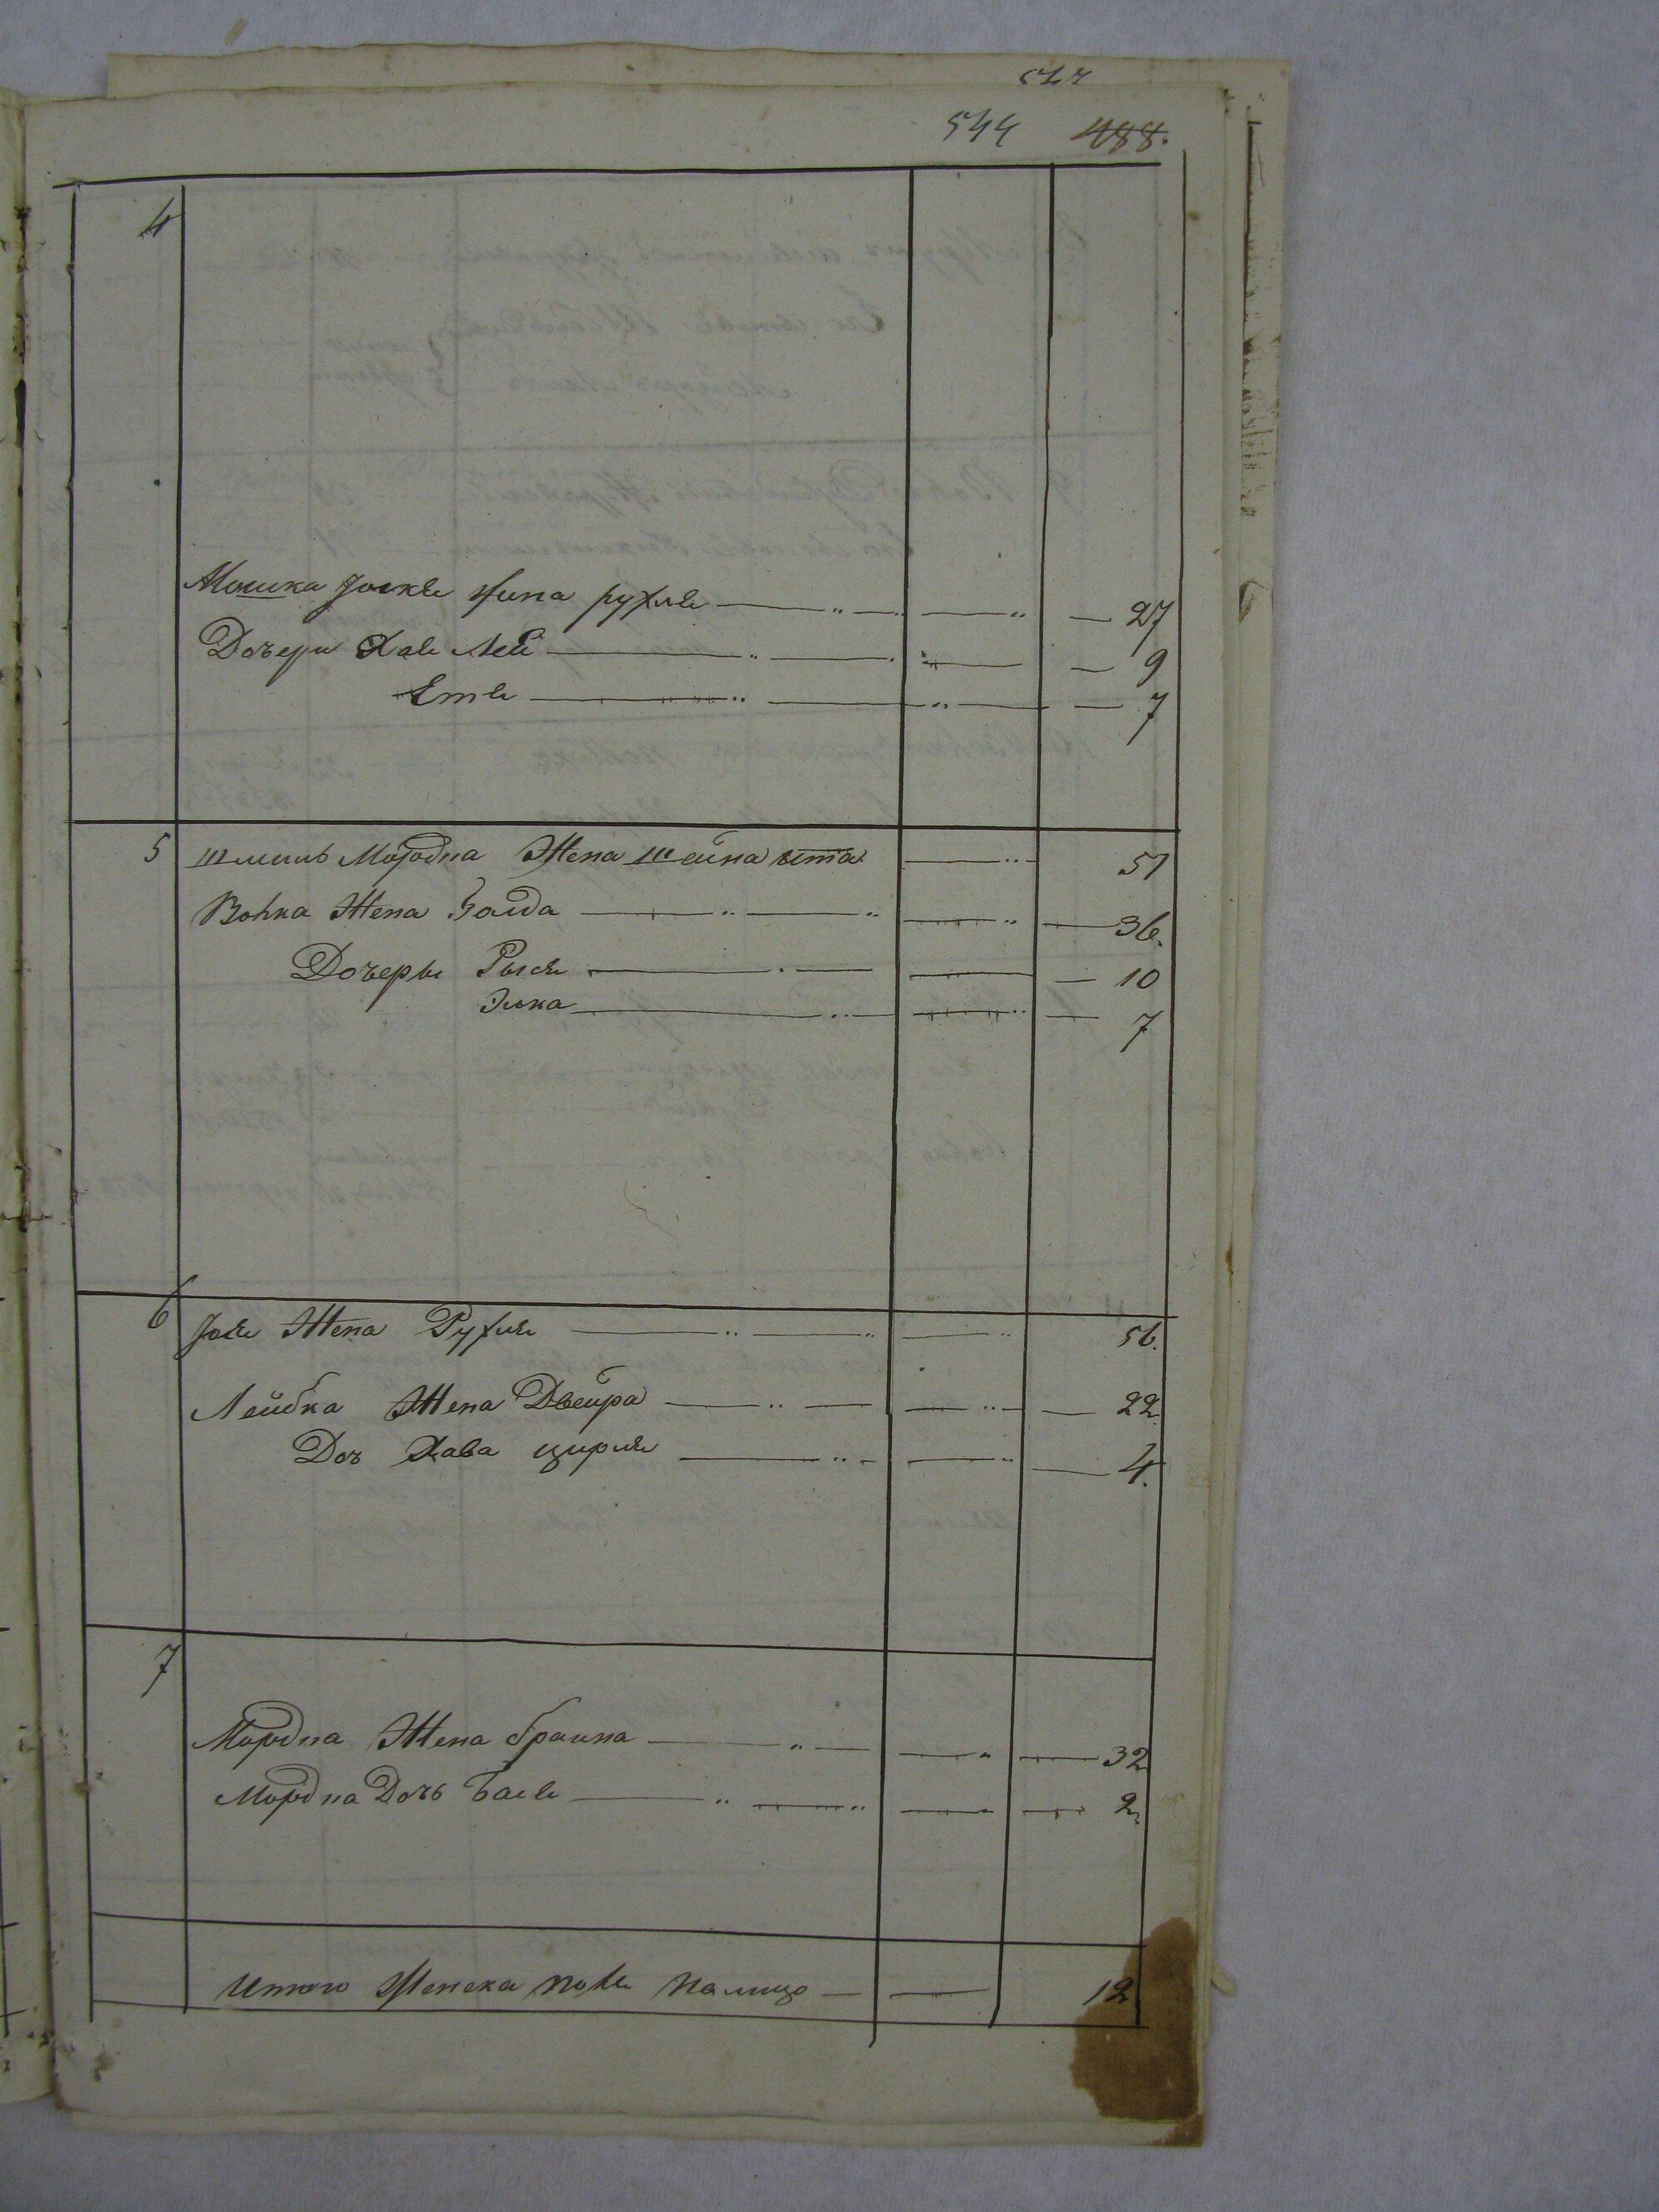 544 488.
4
Мошка Іоскѣ жина рухлѣ 27
Дочери Хаѣ Леѣ 9
Етѣ 7
5 Шмуль Мордха Жена шейна ета 51
Волка Жена Голда 36.
Дочеры Рысѣ 10
Элка 7
6 Іосѣ Жена Рухлѣ 56.
Лейбка Жена Двейра 22
Доч Хава цирлѣ 4.
7
Мордха Жена браина 32
Мордха Дочь Басѣ 2
Итого Женска полѣ налицо 12